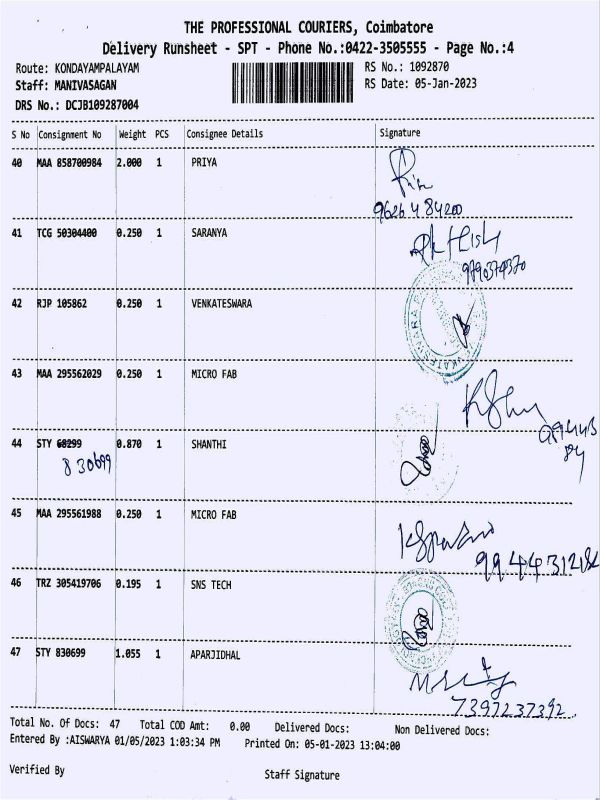 THE PROFESSIONAL COURIERS, Coimbatore
Delivery Runsheet - SPT - Phone No.:0422-3505555 - Page No.:4
Route: KONDAYAMPALAYAM RS No.: 1092870
Staff: MANIVASAGAN RS Date: 05-Jan-2023
DRS No.: DCJB109287004
S No Consignment No Weight PCS Consignee Details Signature
40 MAA 858700984 2.000 1 PRIYA
9626484200
41 TCG 50304400 0.250 1 SARANYA
42 RJP 105862 0.250 1 VENKATESWARA
43 MAA 295562029 0.250 1 MICRO FAB
44 STY 68299 0.870 1 SHANTHI
830699
45 MAA 295561988 0.250 1 MICRO FAB
46 TRZ 305419706 0.195 1 SNS TECH
47 STY 830699 1.055 1 APARJIDHAL
7397237392
Total No. Of Docs: 47 Total COD Amt: 0.00 Delivered Docs: Non Delivered Docs:
Entered By :AISWARYA 01/05/2023 1:03:34 PM Printed On: 05-01-2023 13:04:00
Verified By Staff Signature